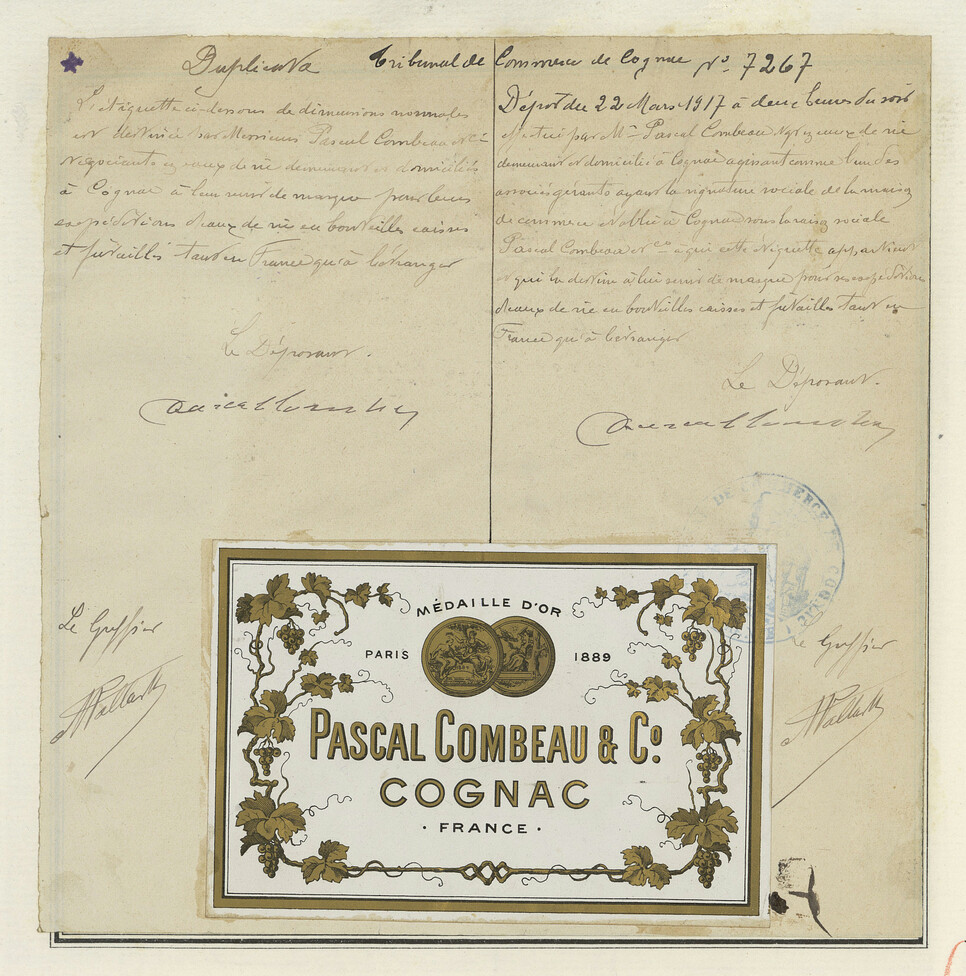 Duplicata
L'étiquette ci-dessous de dimensions normales
est destinée par Messieurs Pascal Combeau & Cie
Négociants en eaux de vie demeurant et domiciliés
à Cognac à leur servir de marque pour leurs
expéditions d'eaux de vie en bouteilles caisses
et futailles tant en France qu'à l'étranger
Le Déposant.
Le Greffier
Tribunal de Commerce de Cognac No. 7267
Dépôt du 22 Mars 1917 à deux heures du soir
effectué par Mr. Pascal Combeau Ngt en eaux de vie
demeurant et domicilié à Cognac agissant comme l'un des
associés gérants ayant la signature sociale de la maison
de commerce établie à Cognac sous la raison sociale
Pascal Combeau & Co à qui cette étiquette appartient
et qui la destine à lui servir de marque pour ses expéditions
d'eaux de vie en bouteilles caisses et futailles tant en
France qu'à l'étranger
Le Déposant.
DE COMMERCE DE COGNAC
Le Greffier
MÉDAILLE D'OR
PARIS 1889
PASCAL COMBEAU & Co.
COGNAC
· FRANCE ·